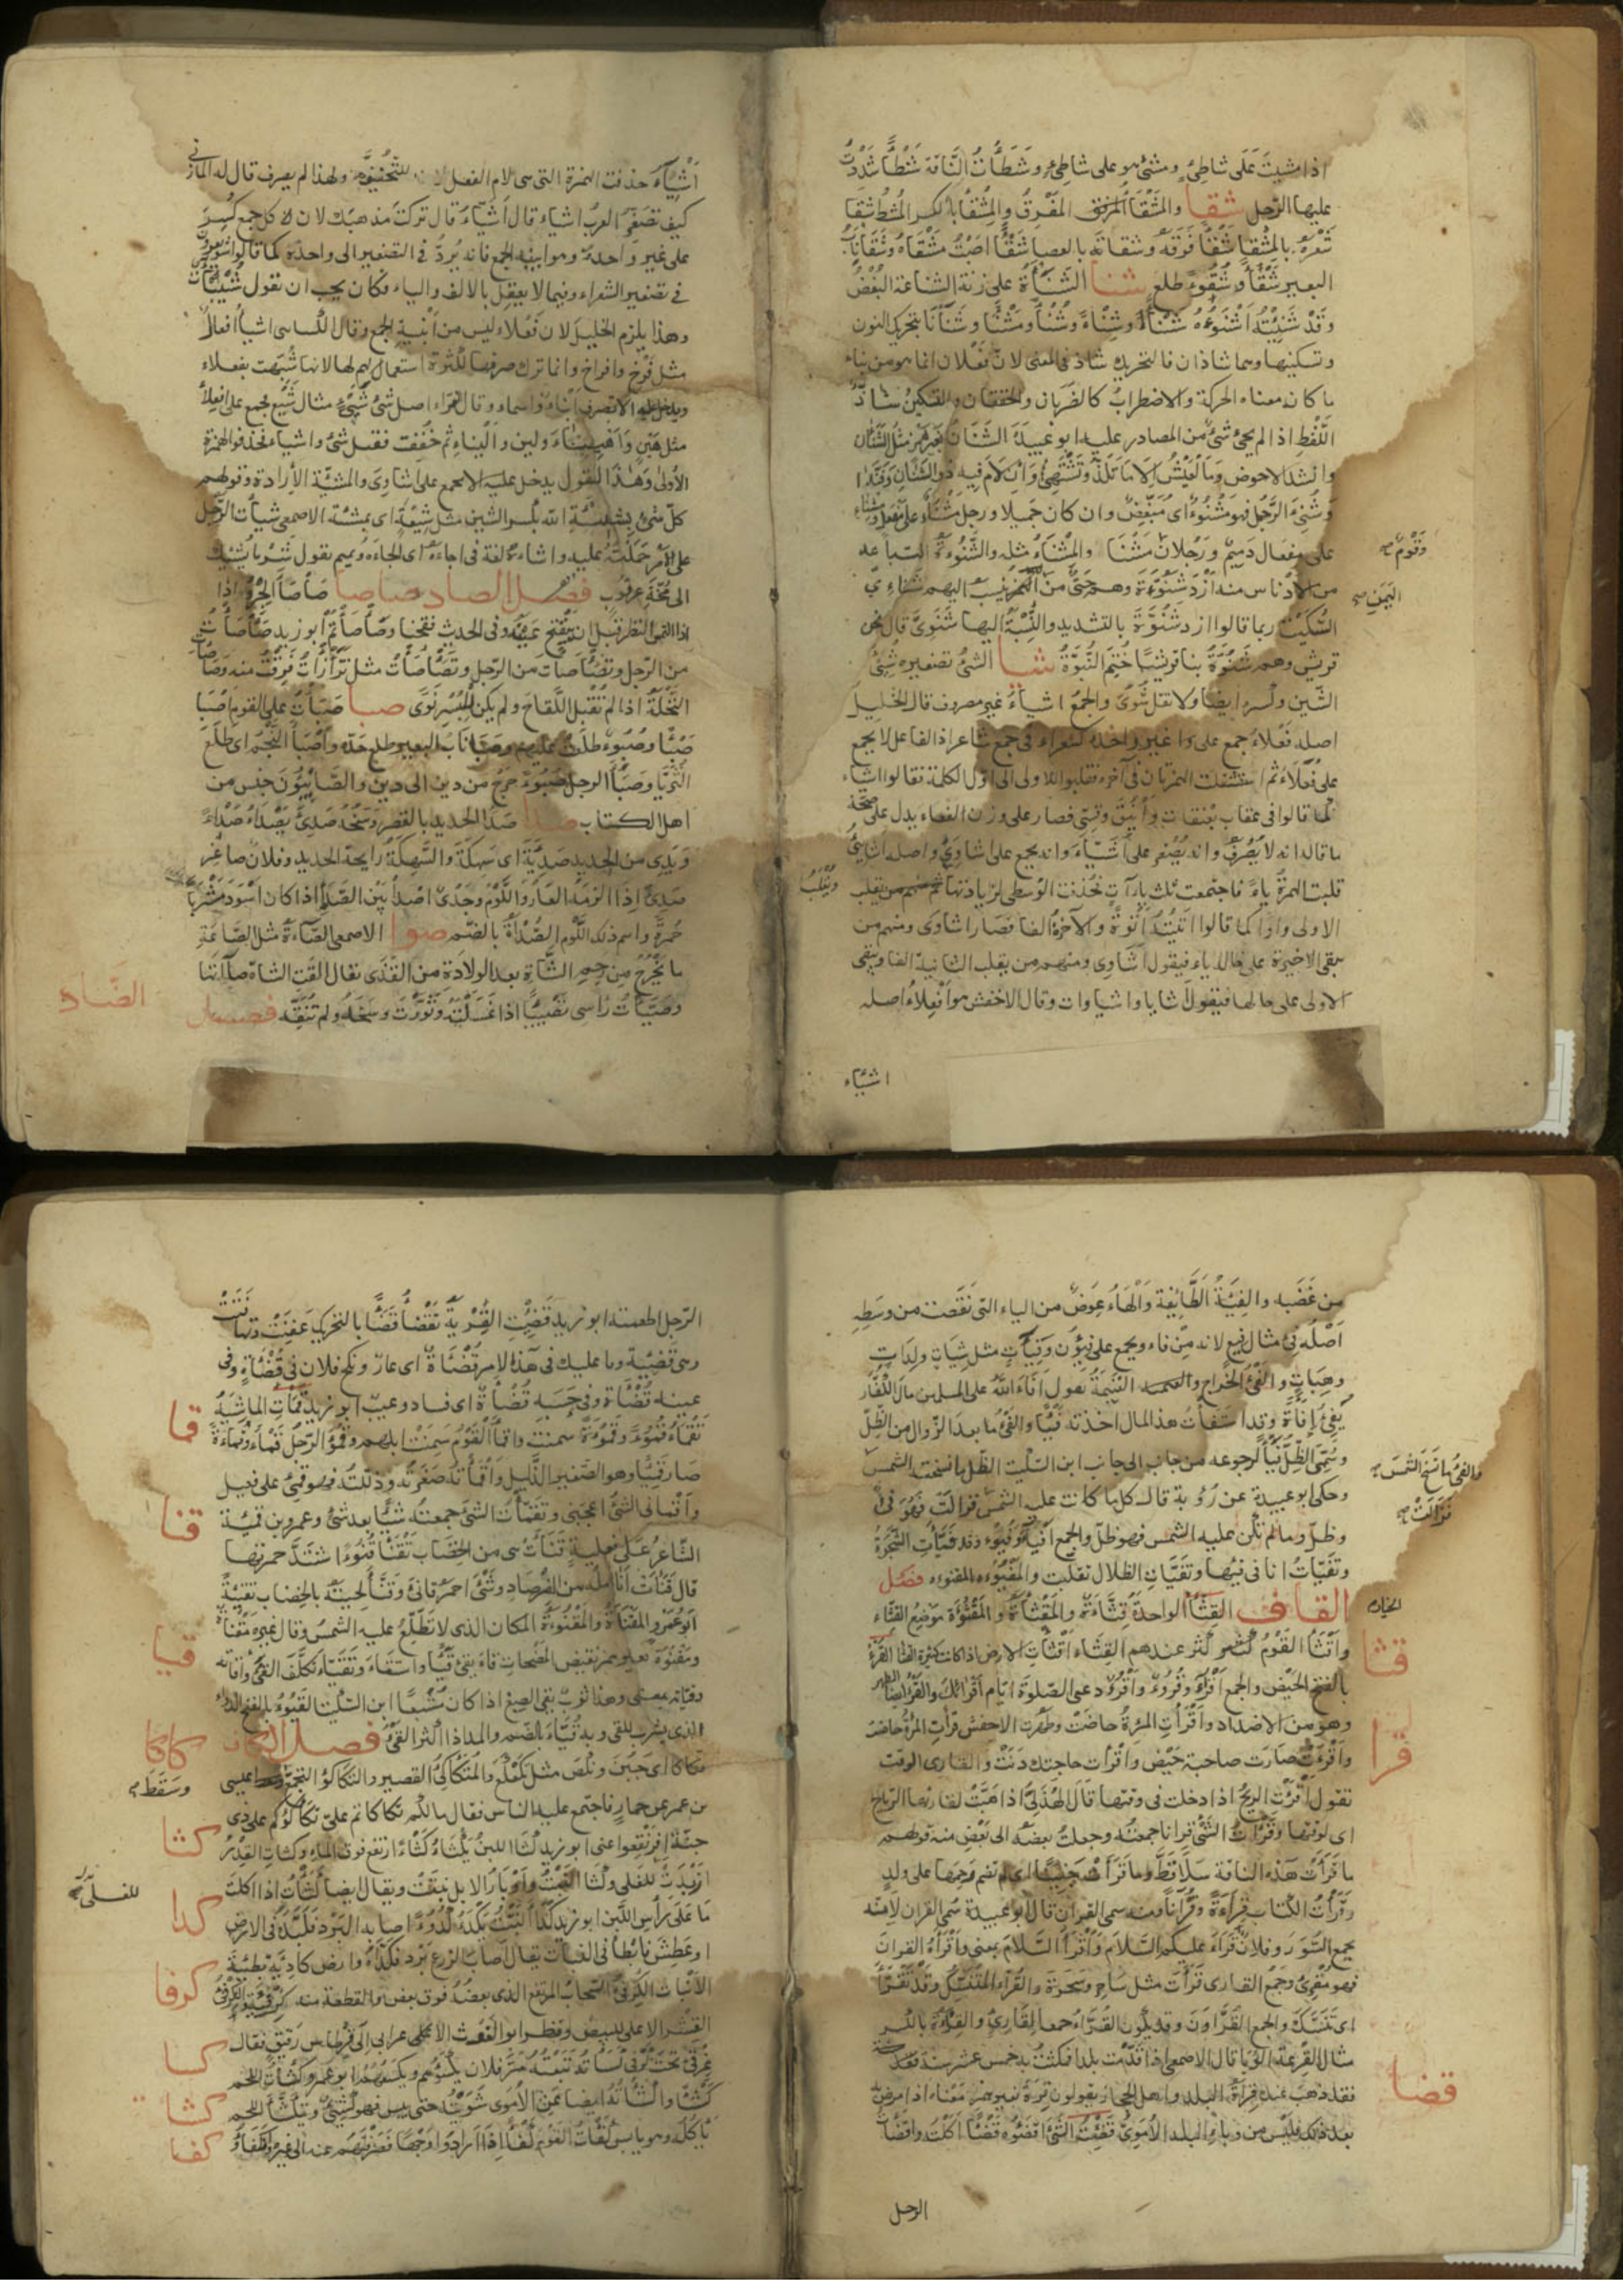 اذا مشيت على شاطئ ومشى هو على شاطئ وشطأت الناقة شطأ شددت
عليها الرحل شقا والمشقأ المفرق والمشقأ بالكسر المشط شقأ
شعره بالمشقأ شقأ فرقه وشقأته بالعصا شقأ اصبت مشقأه وشقأ ناب
البعير شقأ وشقوءا طلع شنا الشناءة على زنة الشناعة البغض
وقد شنئته اشنؤه شنأ وشنأ وشنأ ومشنأ وشنآنا بتحريك النون
وتسكينها وهما شاذان فالتحريك شاذ في المعنى لان فعلان انما هو من بناء
ما كان معناه الحركة والاضطراب كالضربان والخفقان والتسكين شاذ
اللفظ اذا لم يجئ شئ من المصادر عليه ابو عبيدة الشنان بغير همز مثل الشنآن
وانشد الاحوص وما العيش الا ما تلذ وتشتهي وان لام فيه ذو الشنان وفندا
وشنئ الرجل فهو مشنوء اى مبغض وان كان جميلا ورجل مشنأ على مفعل
وقوم صح
على مفعال دميم ورجلان مشنأ والمشناء مثله والشنوءة التباعد
من الادناس منه ازد شنوءة وهم حي من اليمن ينسب اليهم شنائي
اليمن صح
السكيت ربما قالوا ازد شنوة بالتشديد والنسبة اليها شنوى قال نحن
قريش وهم شنوة بنا قريشا ختم النبوة شيا الشئ تصغيره شيئ
الشين وكسره ايضا ولا تقل شوى والجمع اشياء غير مصروف قال الخليل
اصله فعلاء جمع على وا غير واحده كشعراء في جمع شاعر اذ الفاعل لا يجمع
على فعلاء ثم استثقلت الهمزتان في آخره فقلبوا الاولى الى اول الكلمة فقالوا اشياء
كما قالوا في عقاب بعنقاة وأينق وقسي فصار على وزن لفعاء يدل على صحة
ما قاله انه لا يصرف وانه يصغر على أشياء وانه يجمع على اشاوى واصله اشائي
قلبت الهمزة ياء فاجتمعت ثلث يآت فحذفت الوسطى
وتقلب
الاولى واوا كما قالوا اتيته اتوة والآخرة الفا فصار اشاوى ومنهم من
يبقى الاخيرة على حالها ياء فيقول اشاوى ومنهم من يقلب الثانية الفا ويبقى
الاولى على حالها فيقول شايا واشياوات وقال الاخفش هو افعلاء اصله
اشياء
اشيئاء حذفت الهمزة التي هي لام الفعل للتخفيف ولهذا لم يصرف قال له المازني
كيف تصغر العرب اشياء قال اشياء قال تركت مذهبك لان كل جمع كسر
على غير واحده وهو من ابنية الجمع فانه يرد في التصغير الى واحده كما قالوا شويعرون
في تصغير الشعراء وفيما لا يعقل بالالف والتاء فكان يجب ان تقول شييئات
وهذا يلزم الخليل لان فعلاء ليس من ابنية الجمع وقال الكسائي اشياء افعال
مثل فرخ وافراخ وانما ترك صرفها لكثرة استعمالهم لها لانها شبهت بفعلاء
ويدخل عليه الا تصرف ابناء واسماء وقال الفراء اصل شئ شيئ مثال شيع فجمع على افعلاء
مثل هين واهيناء ولين واليناء ثم خفف فقيل شئ واشياء فحذفوا الهمزة
الاولى وهذا القول يدخل عليه الا يجمع على اشاوى والمشيئة الارادة وقولهم
كل شئ بشيئة الله بكسر الشين مثل شيعة اى بمشيئته الاصمعي شيأت الرجل
على الامر حملته عليه واشاءه لغة في اجاءه اى الجأه وتميم تقول شر ما يشيئك
الى مخة عرقوب فصل الصاد صاصا صأصأ الجرو اذا
اذا التمس النظر قبل ان يفتح عينيه وفي الحديث فقحنا وصأصأتم ابو زيد صأصأت
من الرجل وتصأصأت من الرجل وتصأصأت مثل تزأزأت فرقت منه وصأصأت
النخلة اذا لم تقبل اللقاح ولم يكن للبسر نوى صبا صبأت على القوم اصبأ
صبأ وصبوءا طلعت عليهم وصبأ ناب البعير طلع حده واصبأ النجم اى طلع
الثريا وصبأ الرجل صبوءا خرج من دين الى دين والصابئون جنس من
اهل الكتاب صدا صدأ الحديد بالقصر وسخه صدئ يصدأ صدأ
ويدي من الحديد صدئة اى سهكة والسهكة رايحة الحديد وفلان صاغر
صدئ اذا الزمه العار واللوم وجدي اصدأ بين الصدإ اذا كان اسود مشربا
حمرة واسم ذلك اللون الصدأة بالضم صوا الاصمعي الصاءة مثل الصاعة
ما يخرج من رحم الشاة بعد الولادة من القذى يقال القت الشاة صاءتها
وصيأت راسي تصييئا اذا غسلته وثورت وسخه ولم تنقه فصل
الضاد
من غضبه والفئة الطائفة والهاء عوض من الياء التي نقصت من وسطه
اصله فئ مثال فيع لانه من فاء ويجمع على فئون وفئات مثل شيات ولدات
وهبات والفئ الخراج والغنيمة تقول افاء الله على المسلمين مال الكفار
يفئ افاءة وقد استفأت هذا المال اخذته فيئا والفئ ما بعد الزوال من الظل
وسمي الظل فيئا لرجوعه من جانب الى جانب ابن السكيت الظل ما نسخته الشمس
والفئ ما نسخ الشمس صح
وحكى ابو عبيدة عن رؤبة قال كل ما كانت عليه الشمس فزالت فهو فئ
فزالت صح
وظل وما لم تكن عليه الشمس فهو ظل والجمع افياء وفيوء وقد فيأت الشجرة
وتفيأت انا في فيئها وتفيأت الظلال تقلبت والمفيؤه المقنوءه فصل
القاف القثا الواحدة قثاءة والمقثأة والمقثؤة موضع القثاء
الخيار
قثا
واقثأ القوم كثر عندهم القثاء اقثأت الارض اذا كانت كثيرة القثا القرء
بالفتح الحيض والجمع اقراء وقروء واقرؤ دعي الصلوة ايام اقرائك والقرء ايضا الطهر
وهو من الاضداد واقرأت المرءة حاضت وطهرت الاخفش قرأت المرءة حاضت
قرا
واقرءت صارت صاحبة حيض واقرأت حاجتك دنت والقارى الوقت
تقول اقرئت الريح اذا دخلت في وقتها قال الهذلي اذا هبت لقارئها الرياح
اى لوقتها وقرأت الشئ قرانا جمعته وجعلت بعضه الى بعض منه قولهم
ما قرأت هذه الناقة سلاقط وما قرأت جنينا اى لم تضم رحمها على ولد
وقرأت الكتاب قراءة وقرآنا ومنه سمى القرآن قال ابو عبيدة سمى القران لانه
يجمع السور وفلان قرأ عليكم السلام واقرأ السلام بمعنى واقرأه القران
فهو مقرئ وجمع القارى قرأة مثل ساحر وسحرة والقراء المتنسك وقد تقرأ
اى تنسك والجمع القراؤن وقد يكون القراء جمعا لقارئ والقرأة بالكسر
مثال القرعة الوبا قال الاصمعي اذا قدمت بلدا فمكثت به خمس عشرة سنة
فقد ذهب عنك قرأة البلد واهل الحجاز يقولون قرة بغير همز معناه اذا مرضت
قضا
بعد ذلك فليس من وباء البلد الاموى قضئت الشئ اقضؤه قضأ اكلته واقضأت
الرجل
الرجل اطعمته ابو زيد قضئت القربة تقضأ قضأ بالتحريك عفنت وتهافتت
وهي قضئة وما عليك في هذا الامر قضأة اى عار ونكح فلان في قضأة وفي
عينه قضأة وفي حسبه قضأة اى فساد وعيب ابو زيد قمأت الماشية
قما
تقمأ قموءا وقموءة سمنت واقمأ القوم سمنت ابلهم وقمؤ الرجل قمأ وقماءة
صار قميئا وهو الصغير الذليل واقمأته صغرته وذللته فهو قمئ على فعيل
واقمأني الشئ اعجبني وتقمأت الشئ جمعته شيئا بعد شئ وعمرو بن قميئة
قنا
الشاعر على فعيلة قنأت هي من الخضاب تقنأ قنوءا اشتدت حمرتها
قال قنأت انامله من الفرصاد وشئ احمر قانئ وقنأ لحيته بالخضاب تقنئة
ابو عمرو المقنأة والمقنوءة المكان الذي لا تطلع عليه الشمس وقال غيره مقناة
قيا
ومقنوة بغير همز نقيض المضحاة قاء يقئ قيئا واستقاء وتقيأ تكلف القئ واقاته
وقيأته بمعنى وهذا ثوب يقئ الصبغ اذا كان مشبعا ابن السكيت القيوء بالفتح الدواء
الذي يشرب للقي وبه قياء بالضم والمد اذا اكثر القئ فصل الكاف
كاكا
تكاكا اى جبن ونكص مثل تكعكع والمتكأكئ القصير والتكاكؤ التجمع عيسى
وسقط صح
بن عمر عن حمار فاجتمع عليه الناس فقال مالكم تكاكاتم علي تكاكؤكم على ذى
كثا
جنة افرنقعوا عني ابو زيد كثأ اللبن يكثأ كثأ ارتفع فوق الماء وكثأت القدر
ازبدت للغلي وكثأ النبت واوبار الابل نبتت ويقال ايضا كثأت اذا اكلت
للغلى صح
كدا
ما على رأس اللبن ابو زيد كدأ النبت يكدأ كدوءا اصابه البرد فلبده في الارض
او عطش فابطأ في النبات يقال اصاب الزرع برد فكدأه وارض كادئة بطيئة
كرفا
الانبات الكرفئ السحاب المرتفع الذي بعضه فوق بعض والقطعة منه كرفئة والكرفئ
القشر الاعلى للبيض ونظر ابو الغوث الاعرابي الى قرطاس رقيق فقال
كسا
غرقئ تحت كرفئ كسأته تبعته مر فلان يكسؤهم ويكسعهم ابو عمرو كشأت اللحم
كشا
كشأ واكشأته ايضا عن الاموى شويته حتى يبس فهو كشئ ويكشأ اللحم
كفا
يأكله وهو يابس كفأت القوم كفأ اذا ارادوا وجها فصرفتهم عنه الى غيره